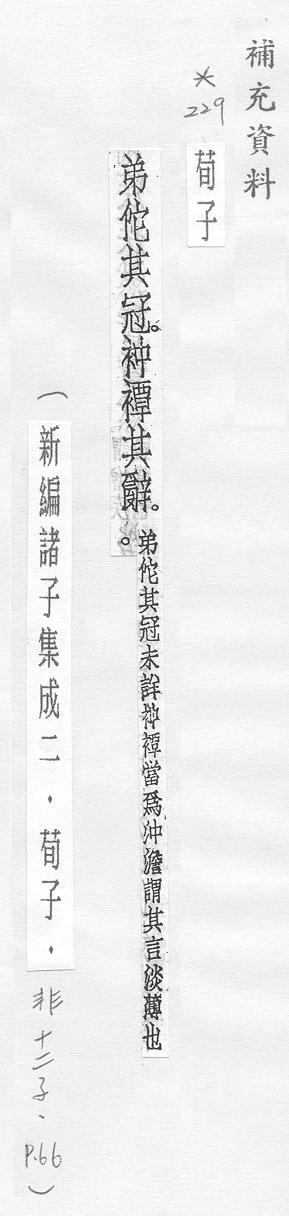 補充資料
※
229
荀子
弟佗其冠。衶禫其辭。。弟佗其冠未詳衶禫當爲沖澹謂其言淡薄也
(新編諸子集成二．荀子．非十二子、P.66)